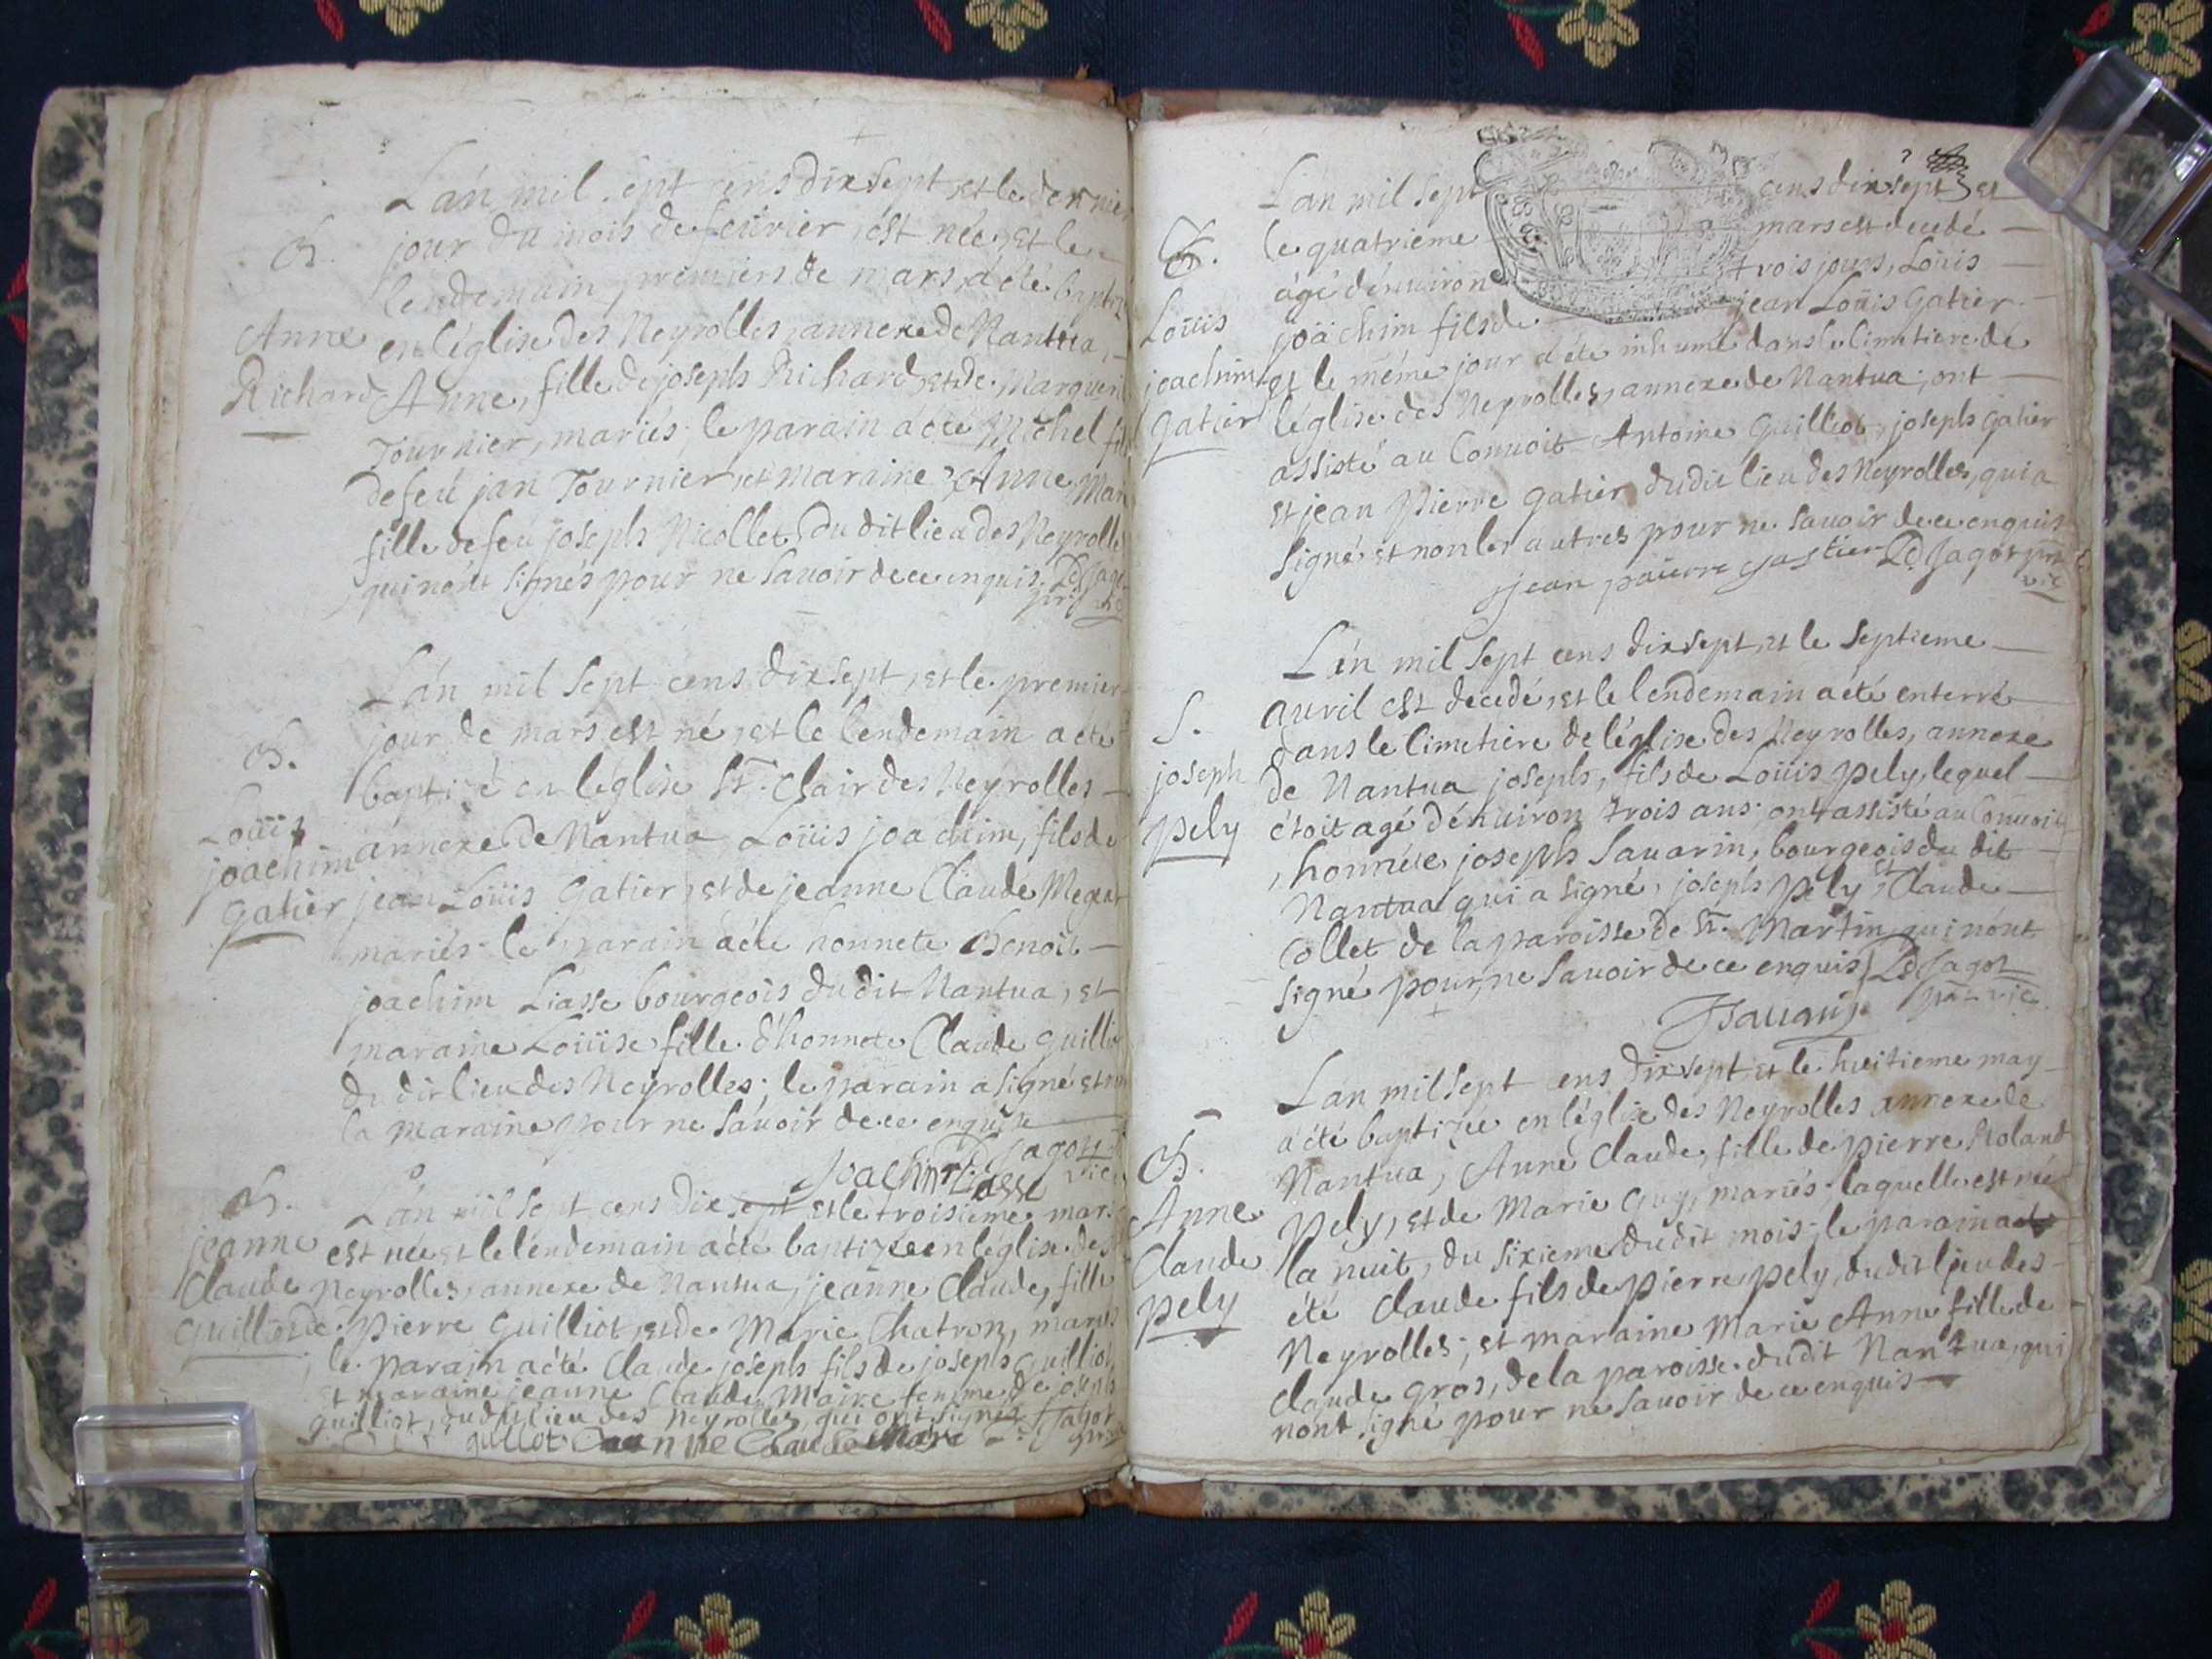 L'án mil sept cens dix sept, et le dernier
jour du mois de feúrier, est née, et le
B.
lendemain, premiers de mars, a été baptiz
Anne
en l'église des Neyrolles, annexe de Nantua,
Richard
Anne, fille de joseph Richard, et de Marguerit
Tournier, mariés; le parain a été Michel fil
de feú jan Tournier, et maraine Anne Mar
fille de feú joseph Nicollet du dit lieu des Neyrolle
qui n'ónt signés pour ne sauoir de ce enquis. Jago
L'án mil sept cens dix sept, et le premier
jour de mars est né, et le lendemain a été
B.
baptizé en l'église St. Clair des Neyrolles
Loüis
joachim
annexe de Nantua Loüis joachim, fils de
Gatier
jean Loüis Gatier, et de jeanne Claude Megeat
mariés; le parain a été honnete Benoit
joachim Liasse bourgeois du dit Nantua, et
maraine Loüise fille d'honnete Claude guillio
du dit lieu des Neyrolles; le parain a signé et
la maraine pour ne sauoir de ce enquise
Joachim Liasse Jagot vic
B.
L'án mil sept cens dix sept et le troisieme mars
jeanne
est née et le lendemain a été baptizée en l'église des
Claude
Neyrolles, annexe de Nantua, jeanne Claude, fille
guilliot
de Pierre guilliot, et de Marie Chatron, mariés
; le parain a été Claude joseph fils de joseph guilliot,
et maraine jeanne Claude Maire femme de joseph
guilliot, du dit lieu des Neyrolles, qui ont signés Jagot
guillot jeanne Claude Maire
L'án mil sept cens dix sept et
le quatrieme mars est decedé
S.
ágé d'énuiron trois jours, Loüis
Loüis
joachim fils de jean Loüis Gatier
joachim
et le méme jour a été inhumé dans le cimetiere de
Gatier
l'église des Neyrolles, annexe de Nantua; ont
assisté au Conuoit Antoine Guilliot, joseph gatier
et jean Pierre gatier du dit lieu des Neyrolles, qui a
signé, et non les autres pour ne sauoir de ce enquis
jean paiirre gastier Jagot prt
vic
L'án mil sept cens dix sept, et le septieme
auril est decedé, et le lendemain a été enterré
S.
dans le cimetiere de l'église des Neyrolles, annexe
joseph
de Nantua joseph, fils de Loüis pely, lequel
pely
étoit agé d'énuiron trois ans; ont assisté au Conuoit
, honnéte joseph Sauarin, bourgeois du dit
Nantua qui a signé, joseph Pely, et Claude
Collet de la paroisse de St. Martin qui n'ónt
signé pour ne sauoir de ce enquis Jagot
prt vic
JSauarin
L'an mil sept cens dix sept et le huitieme may
a été baptizée en l'église des Neyrolles annexe de
B.
Nantua, Anne Claude, fille de Pierre Roland
Anne
Pely, et de Marie Guy, mariés; laquelle est née
Claude
la nuit, du sixieme du dit mois; le parain a
pely
été Claude fils de Pierre Pely, du dit lieu des
Neyrolles; et maraine Marie Anne fille de
Claude Gros, de la paroisse du dit Nantua, qui
n'ont signé pour ne sauoir de ce enquis